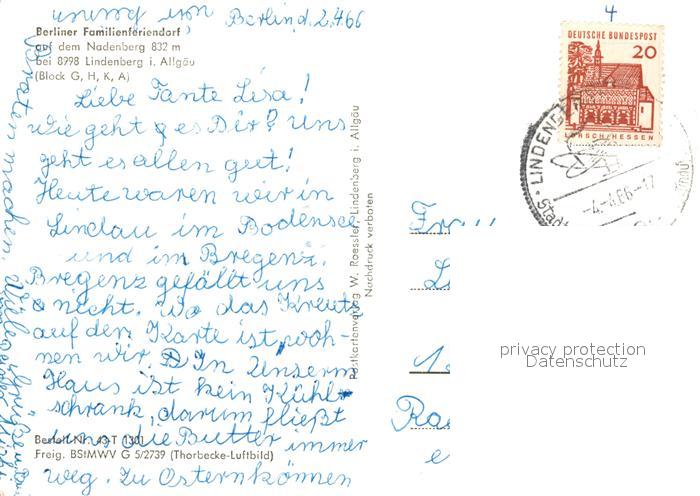 Berlin d. 2.4.66
Berliner Familienferiendorf
auf dem Nadenberg 832 m
bei 8998 Lindenberg i. Allgäu
(Block G, H, K, A)
Liebe Tante Lisa!
Wie geht es Dir? Uns
geht es allen gut!
Heute waren wir in
Lindau im Bodensee
und im Bregenz.
Bregenz gefällt uns
nicht. Wo das Kreutz
auf der Karte ist, woh-
nen wir. In Unserm
Haus ist kein Kühl-
schrank, darum fließt
uns die Butter immer
weg. Zu Ostern können
Bestell-Nr. 43-T 1301
Freig. BStMWV G 5/2739 (Thorbecke-Luftbild)
Postkartenverlag W. Roessler, Lindenberg i. Allgäu
Nachdruck verboten
4
DEUTSCHE BUNDESPOST
20
LORSCH/HESSEN
LINDENBERG
-4.-4.66-17
Frau
privacy protection
Datenschutz